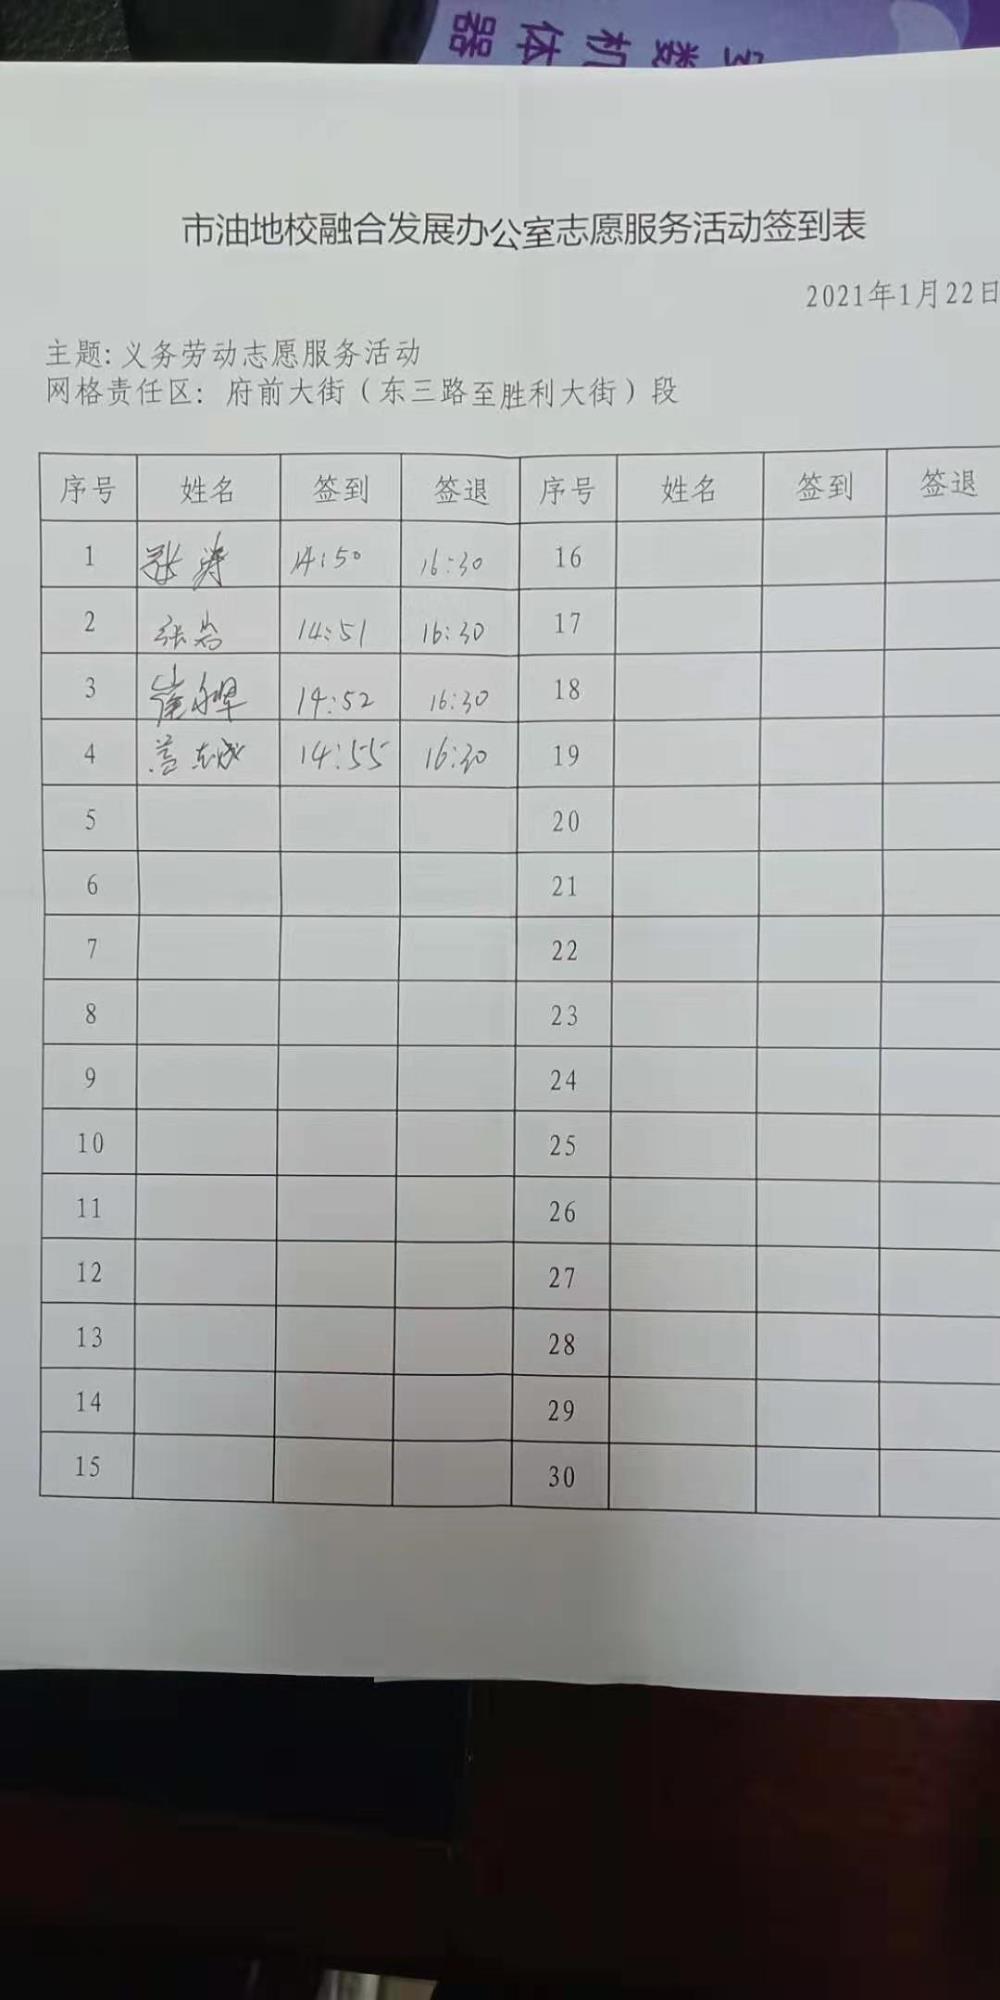 器体机数字
市油地校融合发展办公室志愿服务活动签到表
2021年1月22日
主题:义务劳动志愿服务活动
网格责任区: 府前大街(东三路至胜利大街)段
序号 姓名 签到 签退 序号 姓名 签到 签退
1 张涛 14:50 16:30 16
2 张岩 14:51 16:30 17
3 崔 14:52 16:30 18
4 盖志斌 14:55 16:30 19
5 20
6 21
7 22
8 23
9 24
10 25
11 26
12 27
13 28
14 29
15 30